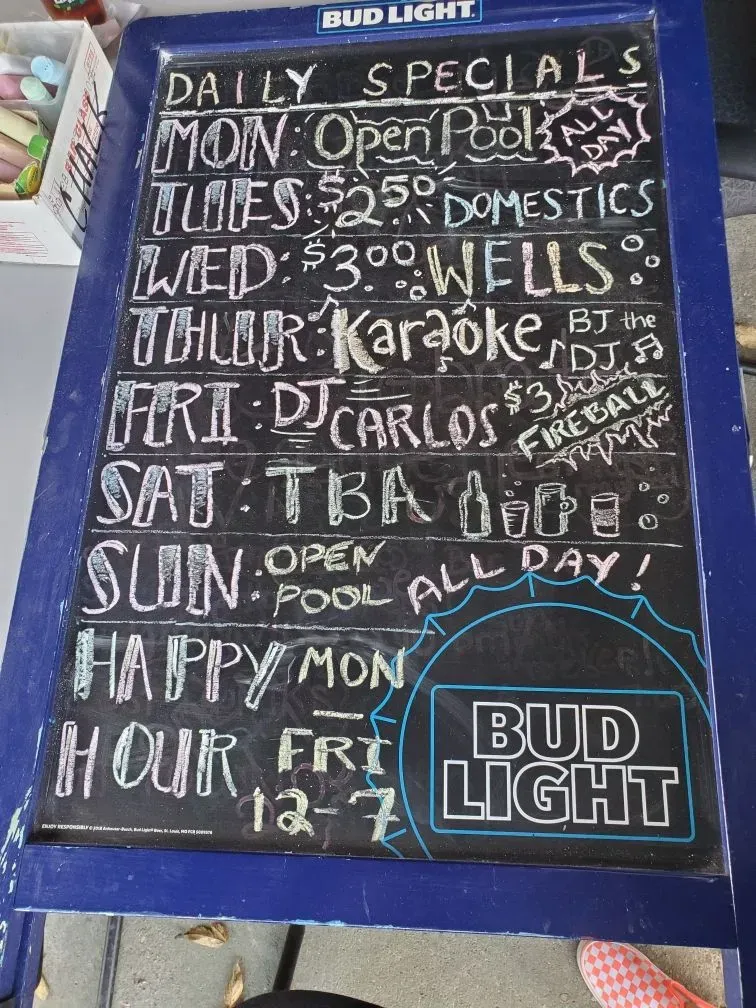 BUD LIGHT
CHALK
DAILY SPECIALS
MON: Open Pool ALL DAY
TUES: $2.50 DOMESTICS
WED: $3.00 WELLS
THUR: Karaoke BJ the DJ
FRI: DJ CARLOS $3 FIREBALL
SAT: TBA
SUN: OPEN POOL ALL DAY!
HAPPY MON
—
HOUR FRI
12-7
BUD
LIGHT